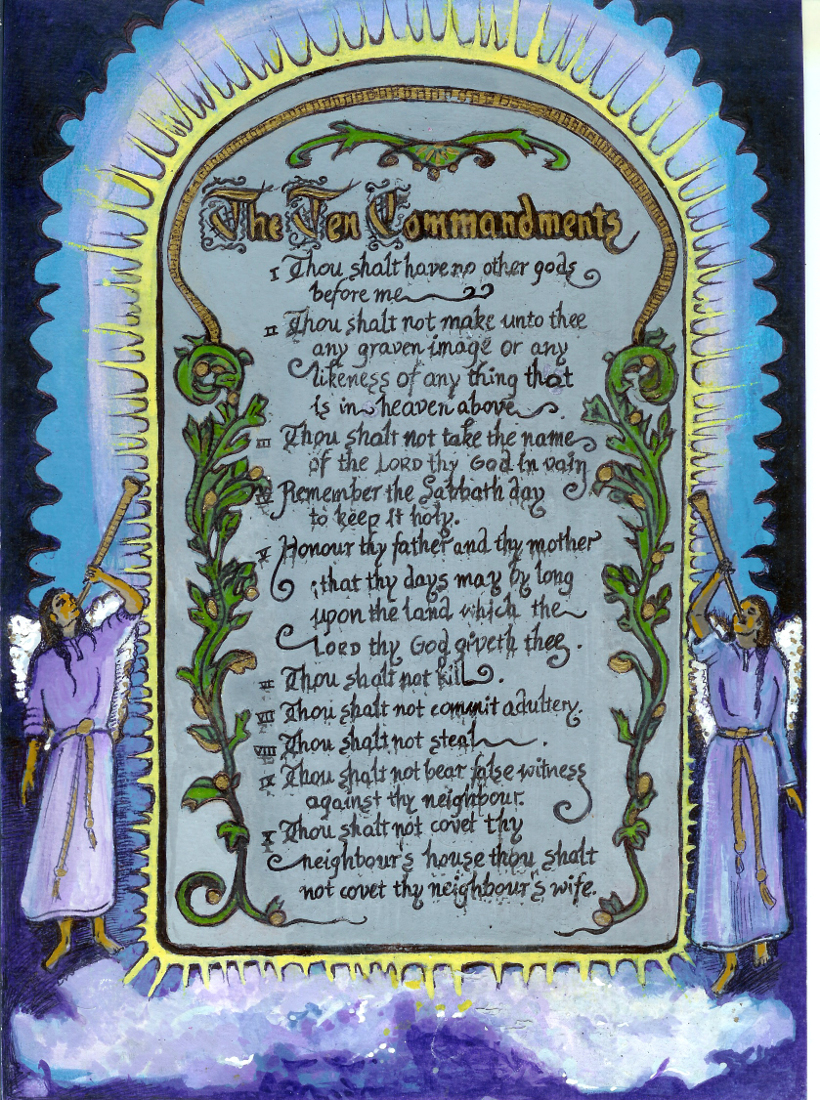 The Ten Commandments
I Thou shalt have no other gods
before me
II Thou shalt not make unto thee
any graven image or any
likeness of any thing that
is in heaven above.
III Thou shalt not take the name
of the LORD thy God in vain
IV Remember the Sabbath day
to keep it holy.
V Honour thy father and thy mother
that thy days may by long
upon the land which the
LORD thy God giveth thee.
VI Thou shalt not kill.
VII Thou shalt not commit adultery.
VIII Thou shalt not steal.
IX Thou shalt not bear false witness
against thy neighbour.
X Thou shalt not covet thy
neighbour's house thou shalt
not covet thy neighbour's wife.